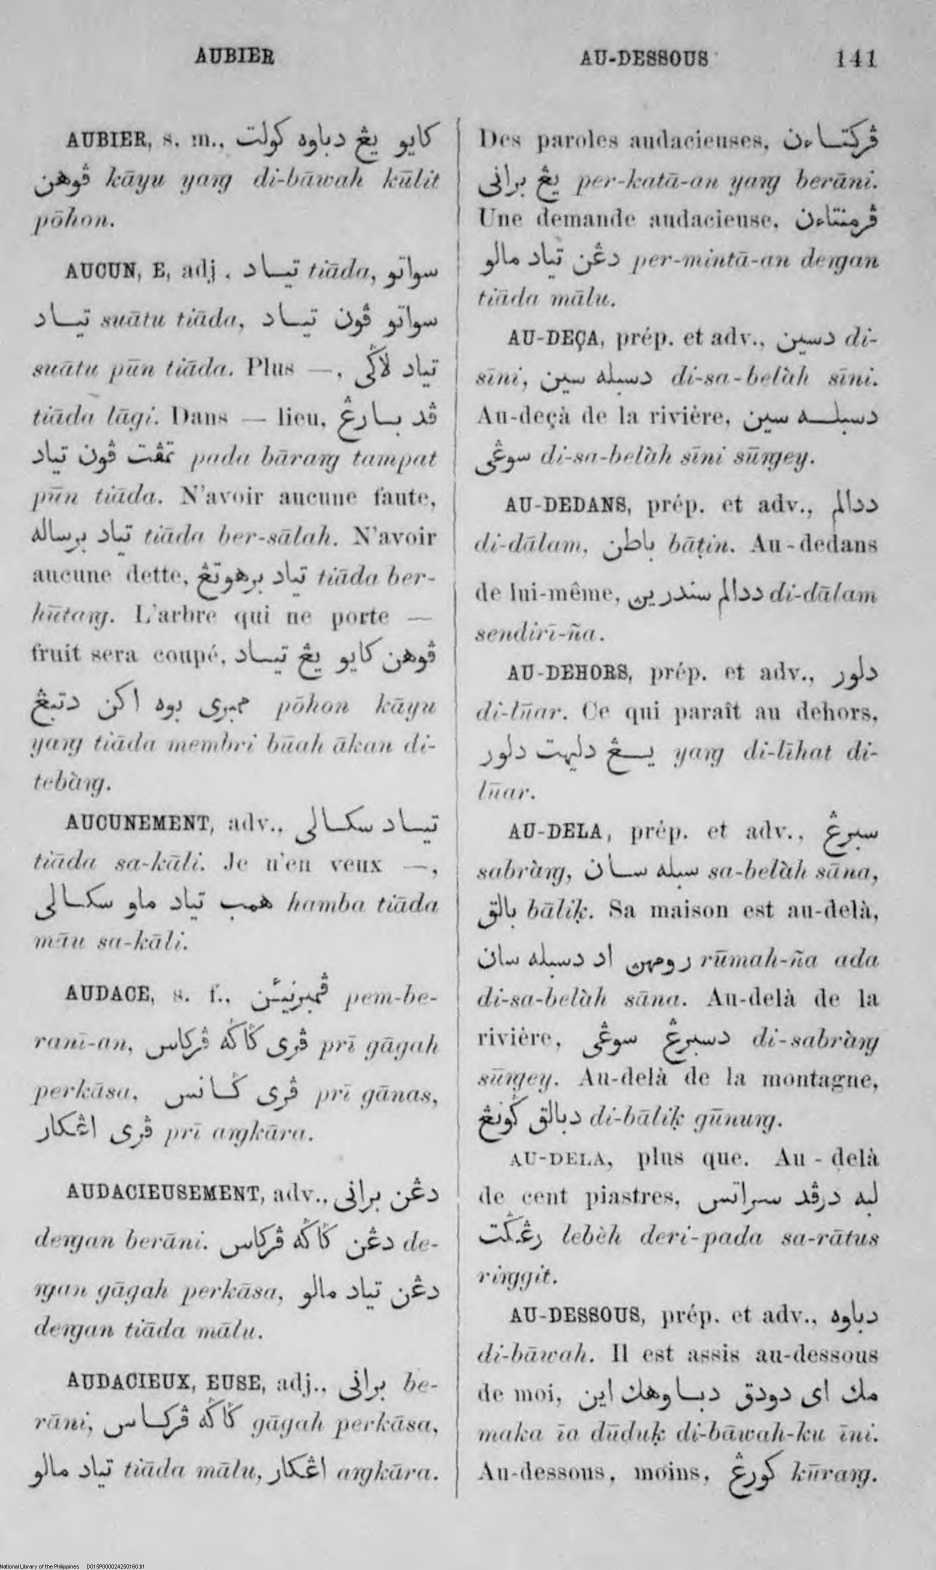 AUBIER
AU-DESSOUS
141
AUBIER, s. m., كايو يڠ دباوه كولت
ڤوهن kāyu yaṅg di-bāwah kūlit
pōhon.
AUCUN, E, adj., تياد tiāda, سواتو
تياد suātu tiāda, سواتو ڤون تياد
suātu pūn tiāda. Plus —, تياد لاڬي
tiāda lāgi. Dans — lieu, ڤد بارڠ
تمڤت ڤون تياد pada bāraṅg tampat
pūn tiāda. N'avoir aucune faute,
تياد برساله tiāda ber-sālah. N'avoir
aucune dette, تياد برهوتڠ tiāda ber-
hūtaṅg. L'arbre qui ne porte —
fruit sera coupé, ڤوهن كايو يڠ تياد
ممبري بوه اكن دتبڠ pōhon kāyu
yaṅg tiāda membri būah ākan di-
tebàṅg.
AUCUNEMENT, adv., تياد سكالي
tiāda sa-kāli. Je n'en veux —,
همب تياد ماو سكالي hamba tiāda
māu sa-kāli.
AUDACE, s. f., ڤمبرنيئن pem-be-
ranī-an, ڤري ڬاڬه ڤركاس prī gāgah
perkāsa, ڤري ڬانس prī gānas,
ڤري اڠكار prī aṅgkāra.
AUDACIEUSEMENT, adv., دڠن براني
deṅgan berāni. دڠن ڬاڬه ڤركاس de-
ṅgan gāgah perkāsa, دڠن تياد مالو
deṅgan tiāda mālu.
AUDACIEUX, EUSE, adj., براني be-
rāni, ڬاڬه ڤركاس gāgah perkāsa,
تياد مالو tiāda mālu, اڠكار aṅgkāra.
Des paroles audacieuses, ڤركتاءن
يڠ براني per-katā-an yaṅg berāni.
Une demande audacieuse, ڤرمنتاءن
دڠن تياد مالو per-mintā-an deṅgan
tiāda mālu.
AU-DEÇA, prép. et adv., دسين di-
sīni, دسبله سين di-sa-belàh sīni.
Au-deçà de la rivière, دسبله سين
سوڠي di-sa-belàh sīni sūṅgey.
AU-DEDANS, prép. et adv., ددالم
di-dālam, باطن bāṭin. Au-dedans
de lui-même, ددالم سندرين di-dālam
sendirī-ña.
AU-DEHORS, prép. et adv., دلور
di-lūar. Ce qui paraît au dehors,
يڠ دليهت دلور yaṅg di-līhat di-
lūar.
AU-DELA, prép. et adv., سبرڠ
sabràṅg, سبله سان sa-belàh sāna,
بالق bāliḳ. Sa maison est au-delà,
رومهن اد دسبله سان rūmah-ña ada
di-sa-belàh sāna. Au-delà de la
rivière, دسبرڠ سوڠي di-sabràṅg
sūṅgey. Au-delà de la montagne,
دبالق ڬونڠ di-bāliḳ gūnuṅg.
AU-DELA, plus que. Au-delà
de cent piastres, لبه درڤد سراتس
رڠڬت lebèh deri-pada sa-rātus
riṅggit.
AU-DESSOUS, prép. et adv., دباوه
di-bāwah. Il est assis au-dessous
de moi, مك اي دودق دباوهك اين
maka īa dūduḳ di-bāwah-ku īni.
Au-dessous, moins, كورڠ kūraṅg.
National Library of the Philippines